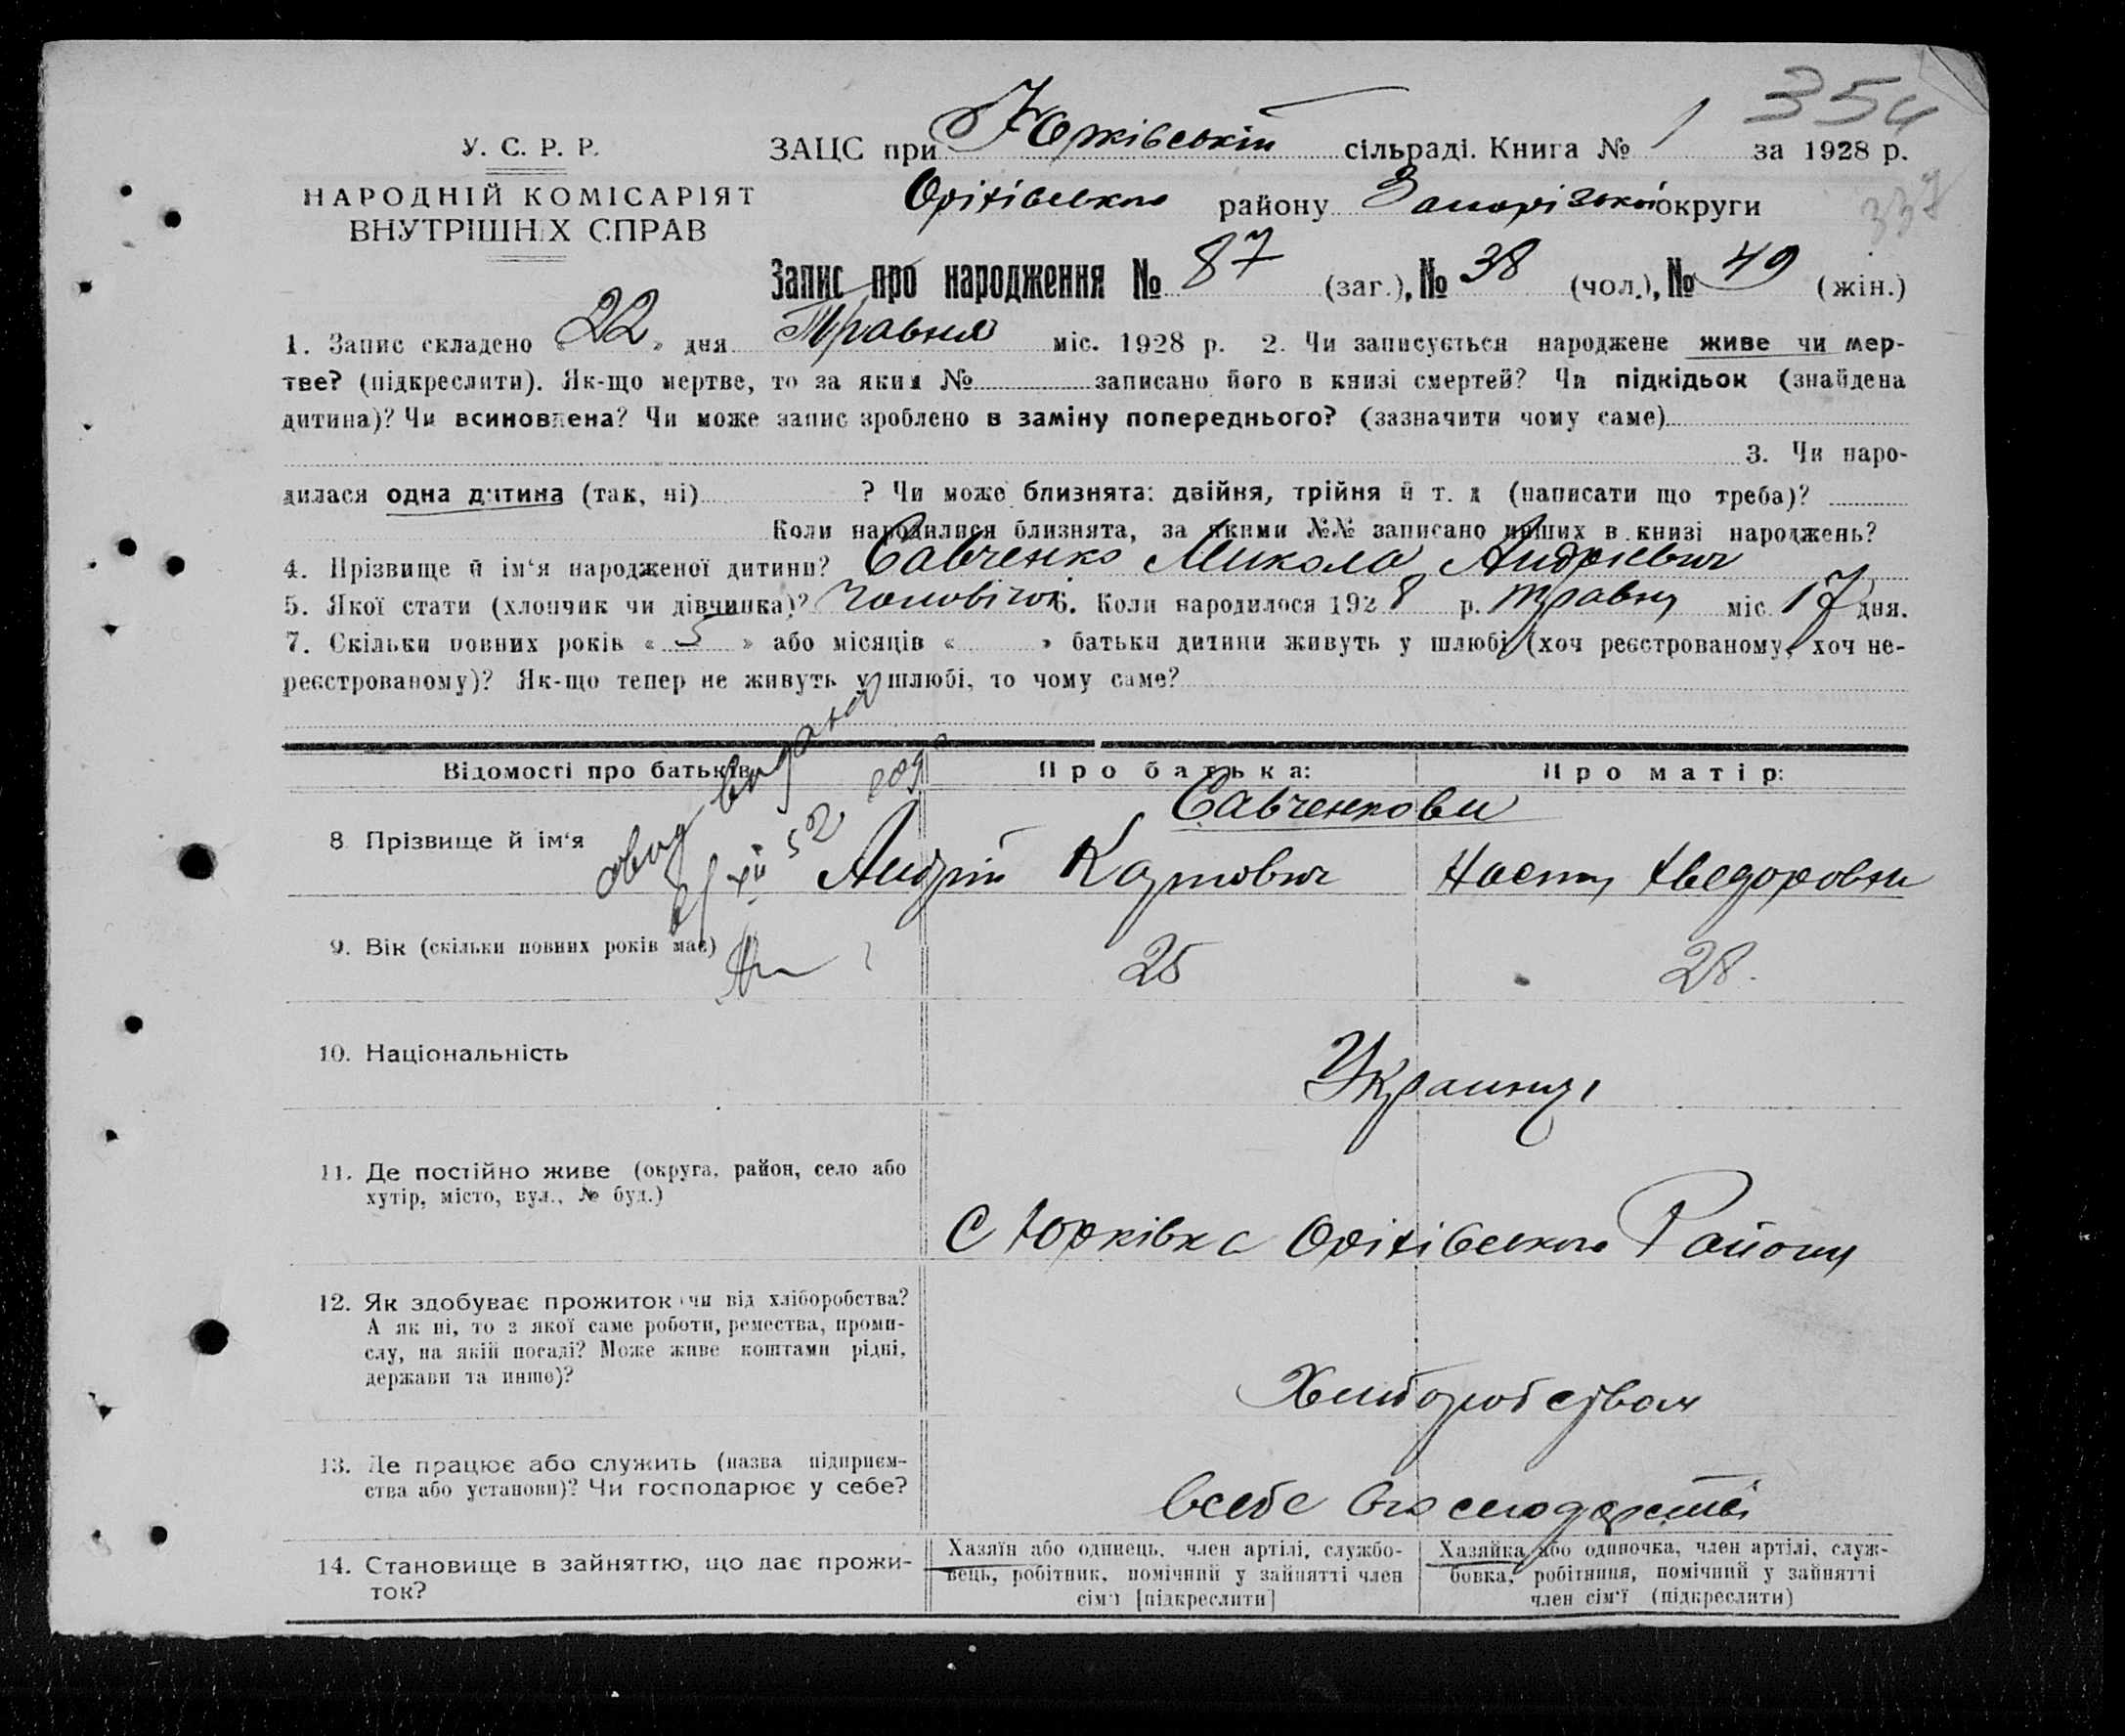 354
У. С. Р. Р.
НАРОДНІЙ КОМІСАРІЯТ
ВНУТРІШНІХ СПРАВ
ЗАЦС при Юрківській сільраді. Книга № 1 за 1928 р.
Оріхівського району Запорізької округи
337
Запис про народження № 87 (заг.), № 38 (чол.), № 49 (жін.)
1. Запис складено « 22 » дня Травня міс. 1928 р. 2. Чи записується народжене живе чи мер-
тве? (підкреслити). Як-що мертве, то за яким № записано його в книзі смертей? Чи підкідьок (знайдена
дитина)? Чи всиновлена? Чи може запис зроблено в заміну попереднього? (зазначити чому саме)
3. Чи наро-
дилася одна дитина (так, ні) ? Чи може близнята: двійня, трійня й т. д (написати що треба)?
Коли народилися близнята, за якими №№ записано инших в книзі народжень?
4. Прізвище й ім‘я народженої дитини? Савченко Микола Андрієвич
5. Якої стати (хлопчик чи дівчинка)? Чоловічої 6. Коли народилося 1928 р. травня міс 17 дня.
7. Скільки повних років « 5 » або місяців « » батьки дитини живуть у шлюбі (хоч реєстрованому, хоч не-
реєстрованому)? Як-що тепер не живуть у шлюбі, то чому саме?
Відомості про батьків
Про батька:
Про матір:
8 Прізвище й ім‘я
Савченкови
Андрій Карпович
Настя Хведоровна
XII 52
9. Вік (скільки повних років має)
25
28.
10. Національність
Украинці
11. Де постійно живе (округа, район, село або
хутір, місто, вул., № буд.)
С Юрківка Оріхівського Району
12. Як здобуває прожиток (чи від хліборобства?
А як ні, то з якої саме роботи, ремества, проми-
слу, на якій посаді? Може живе коштами рідні,
держави та инше)?
Хлиборобством
13. Де працює або служить (назва підприєм-
ства або установи)? Чи господарює у себе?
всебе
14. Становище в зайняттю, що дає прожи-
ток?
Хазяїн або одинець, член артілі, службо-
вець, робітник, помічний у зайнятті член
сім‘ї [підкреслити]
Хазяйка або одиночка, член артілі, служ-
бовка, робітниця, помічний у зайнятті
член сім‘ї (підкреслити)